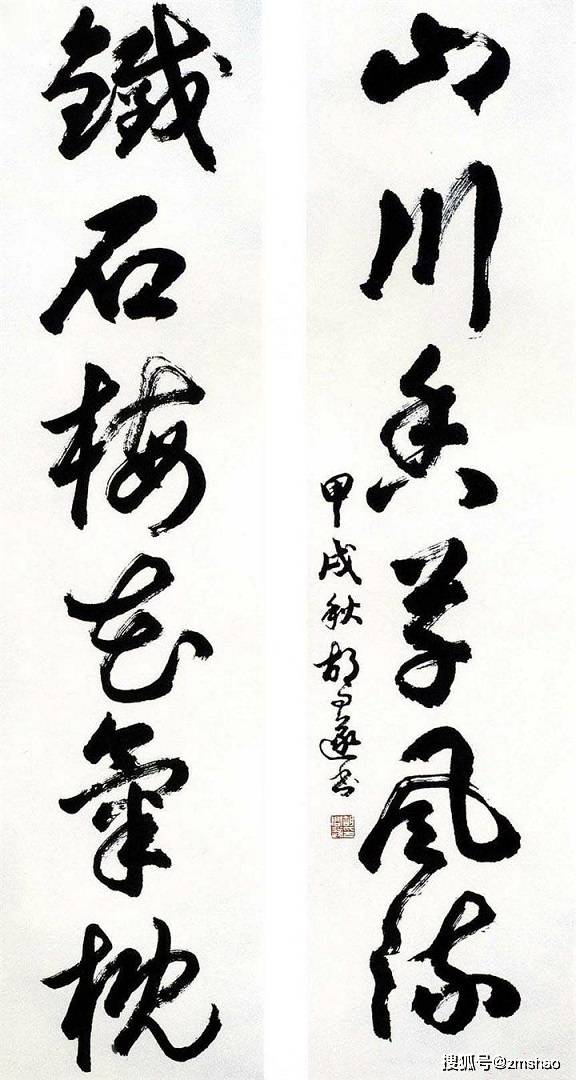 山川香草風流
甲戌秋胡問遂書
鐵石梅花氣概
搜狐号@zmshao